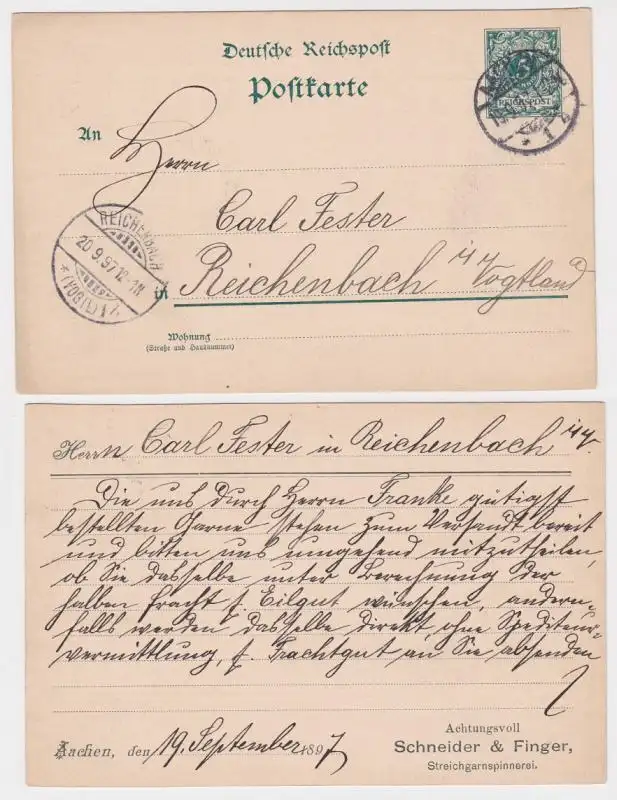 Deutsche Reichspost
Postkarte
REICHSPOST
An
Herrn
Carl Fester
Reichenbach i/V
in
Vogtland
REICHENBACH
20.9.97.12-1N
* (VOGTL) 1
Wohnung
(Straße und Hausnummer)
Herrn Carl Fester in Reichenbach i/V.
Die uns durch Herrn Franke gütigst
bestellten Garne stehen zum Versandt bereit
und bitten uns umgehend mitzutheilen,
ob Sie dasselbe unter Berechnung der
halben Fracht p. Eilgut wünschen, andern-
falls werden dasselbe direkt, ohne Spediteur-
vermittlung, p. Frachtgut an Sie absenden
Aachen, den 19. September 1897
Achtungsvoll
Schneider & Finger,
Streichgarnspinnerei.